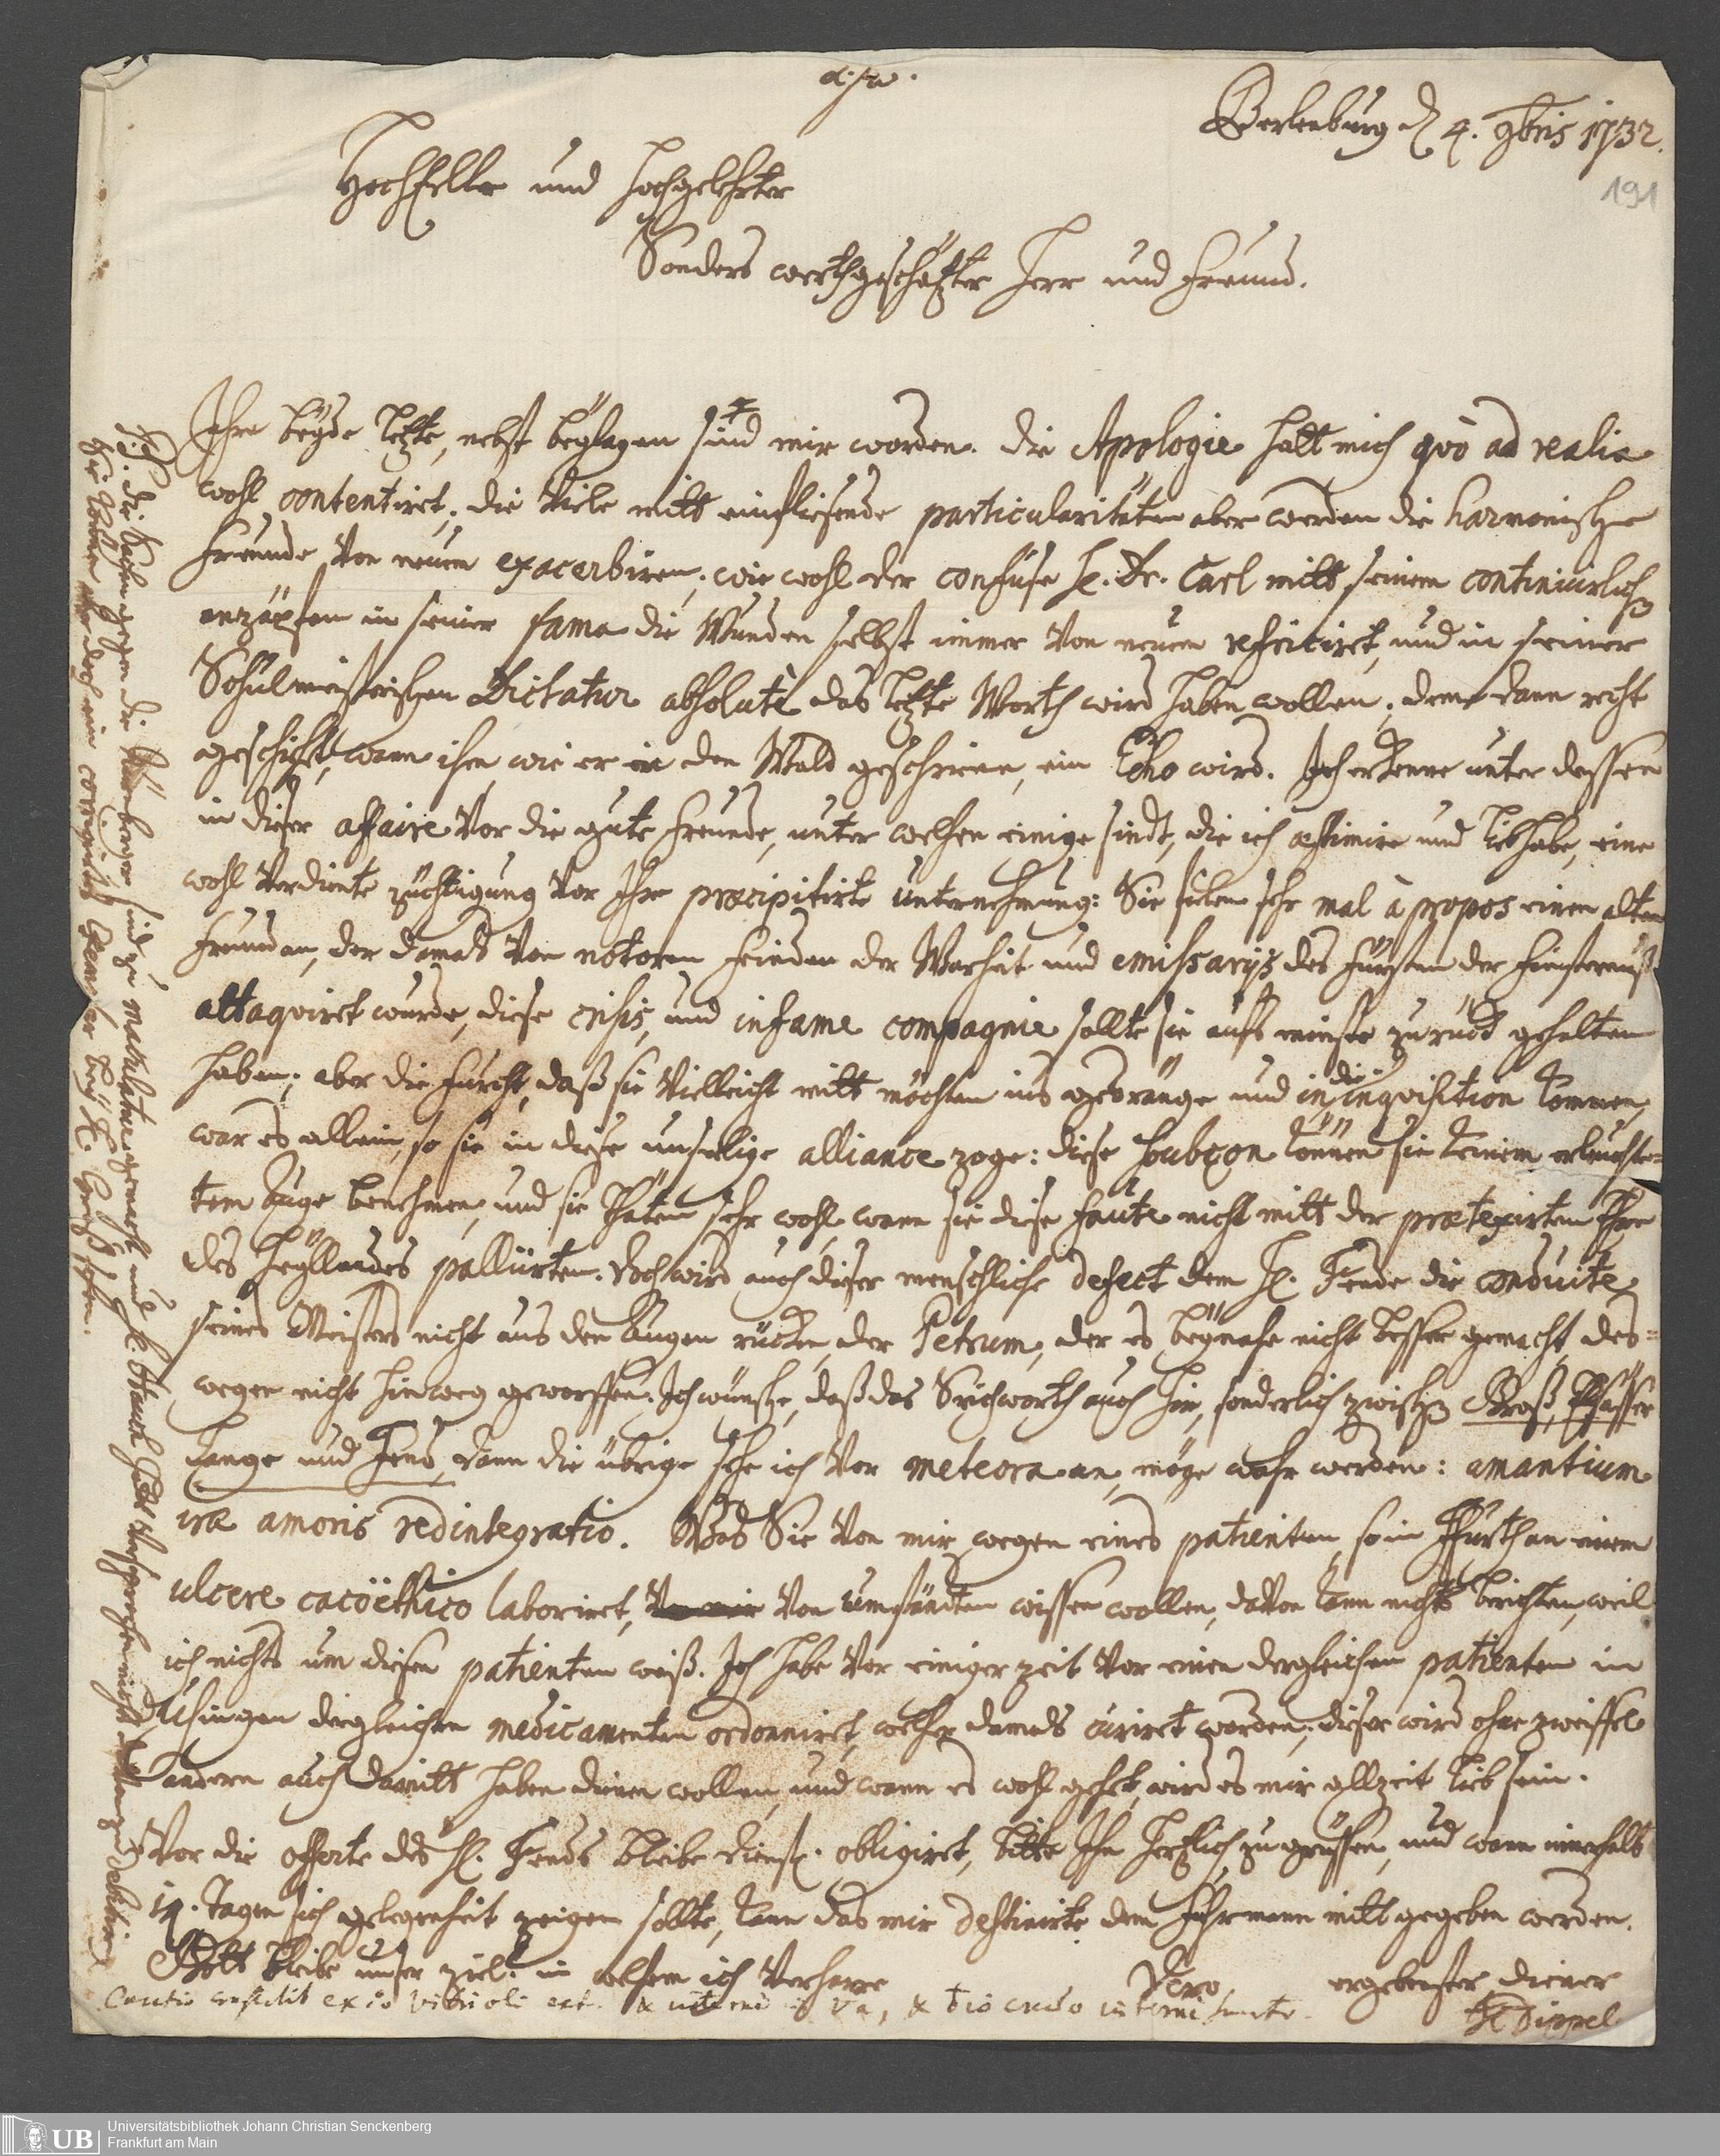 Berlenburg d 4. 9bris 1732.
191
HochEdler und Hochgelehrter
Sonders werthgeschätzter Herr und Freund.
Ihre beyde letzte, nebst beylagen sind mir worden. die Apologie hatt mich quò ad realia
wohl contentiret; die viele mitt einfliesende particularitäten aber werden die harmonische
Freunde von neuem exacerbiren; wie wohl der confuse H. Dr. Carl mitt seinem continuirlichen
anzäpfen in seiner fama die Wunden selbst immer von neuem refriciret, und in seiner
Schulmeisterischen Dictatur absolutè das letzte Worth wird haben wollen; deme dann recht
geschicht, wann ihm, wie er in den Wald geschrieen, ein Echo wird. Ich erkenne unter dessen
in dieser affaire vor die gute Freunde, unter welchen einige sindt, die ich æstimire und lieb habe, eine
wohl verdiente züchtigung vor Ihre præcipitirte unternehmung: Sie fielen sehr mal à propos einen alten
Freund an, der damals von notoren Feinden der Warheit und emissarijs des Fürsten der Finsternuß
attaquiret wurde, diese crisis, und infame compagnie sollte sie aufs minste zurück gehalten
haben; aber die Furcht, daß sie vielleicht mitt möchten ins gedränge und in die inquisition kommen,
war es allein, so sie in diese unselige alliance zoge: diese soubçon können sie keinem erleuchte-
tem Auge benehmen, und sie thäten sehr wohl, wann sie diese faute nicht mitt der prætexirten Ehre
des Heyllandes palliirten. doch wird auch dieser menschliche defect dem H. Fende die conduite
seines Meisters nicht aus den Augen rücken, der Petrum, der es beynahe nicht besser gemacht, des-
wegen nicht hinweg geworffen. Ich wünsche, daß das Sprichworth auch hier, sonderlich zwischen Groß,
Lange und Fend, dann die übrige sehe ich vor meteora an, möge wahr werden: amantium
iræ amoris redintegratio. Was Sie von mir wegen eines patienten, so in Fürth an einem
ulcere cacoëthico laboriret, von umständten wissen wollen, davon kann nichts berichten, weil
ich nichts um diesen patienten weiß. Ich habe vor einiger zeit vor einen dergleichen patienten in
Usingen dergleichen medicamenten ordonniret, welcher damals curiret worden; dieser wird ohne zweiffel
andern auch damitt haben dienen wollen, und wann es wohl gehet, wird es mir allzeit lieb sein.
Vor die offerte des H. Fends bleibe dienstl. obligiret, bitte Ihn hertzlich zu grüssen, und wann innerhalb
14. tagen sich gelegenheit zeigen sollte, kann das mir destinirte dem Fuhrmann mitt gegeben werden.
Gott bleibe unser ziel! in welchem ich verharre
Dero ergebenster diener
JC Dippel
PS. die sachen gegen die Nürnberger sind zu makulatur gemacht und H. Haude hatt versprochen nichts davon zu debitiren
Sie können aber doch ein corrigirtes exemplar bey H. Groß sehen.